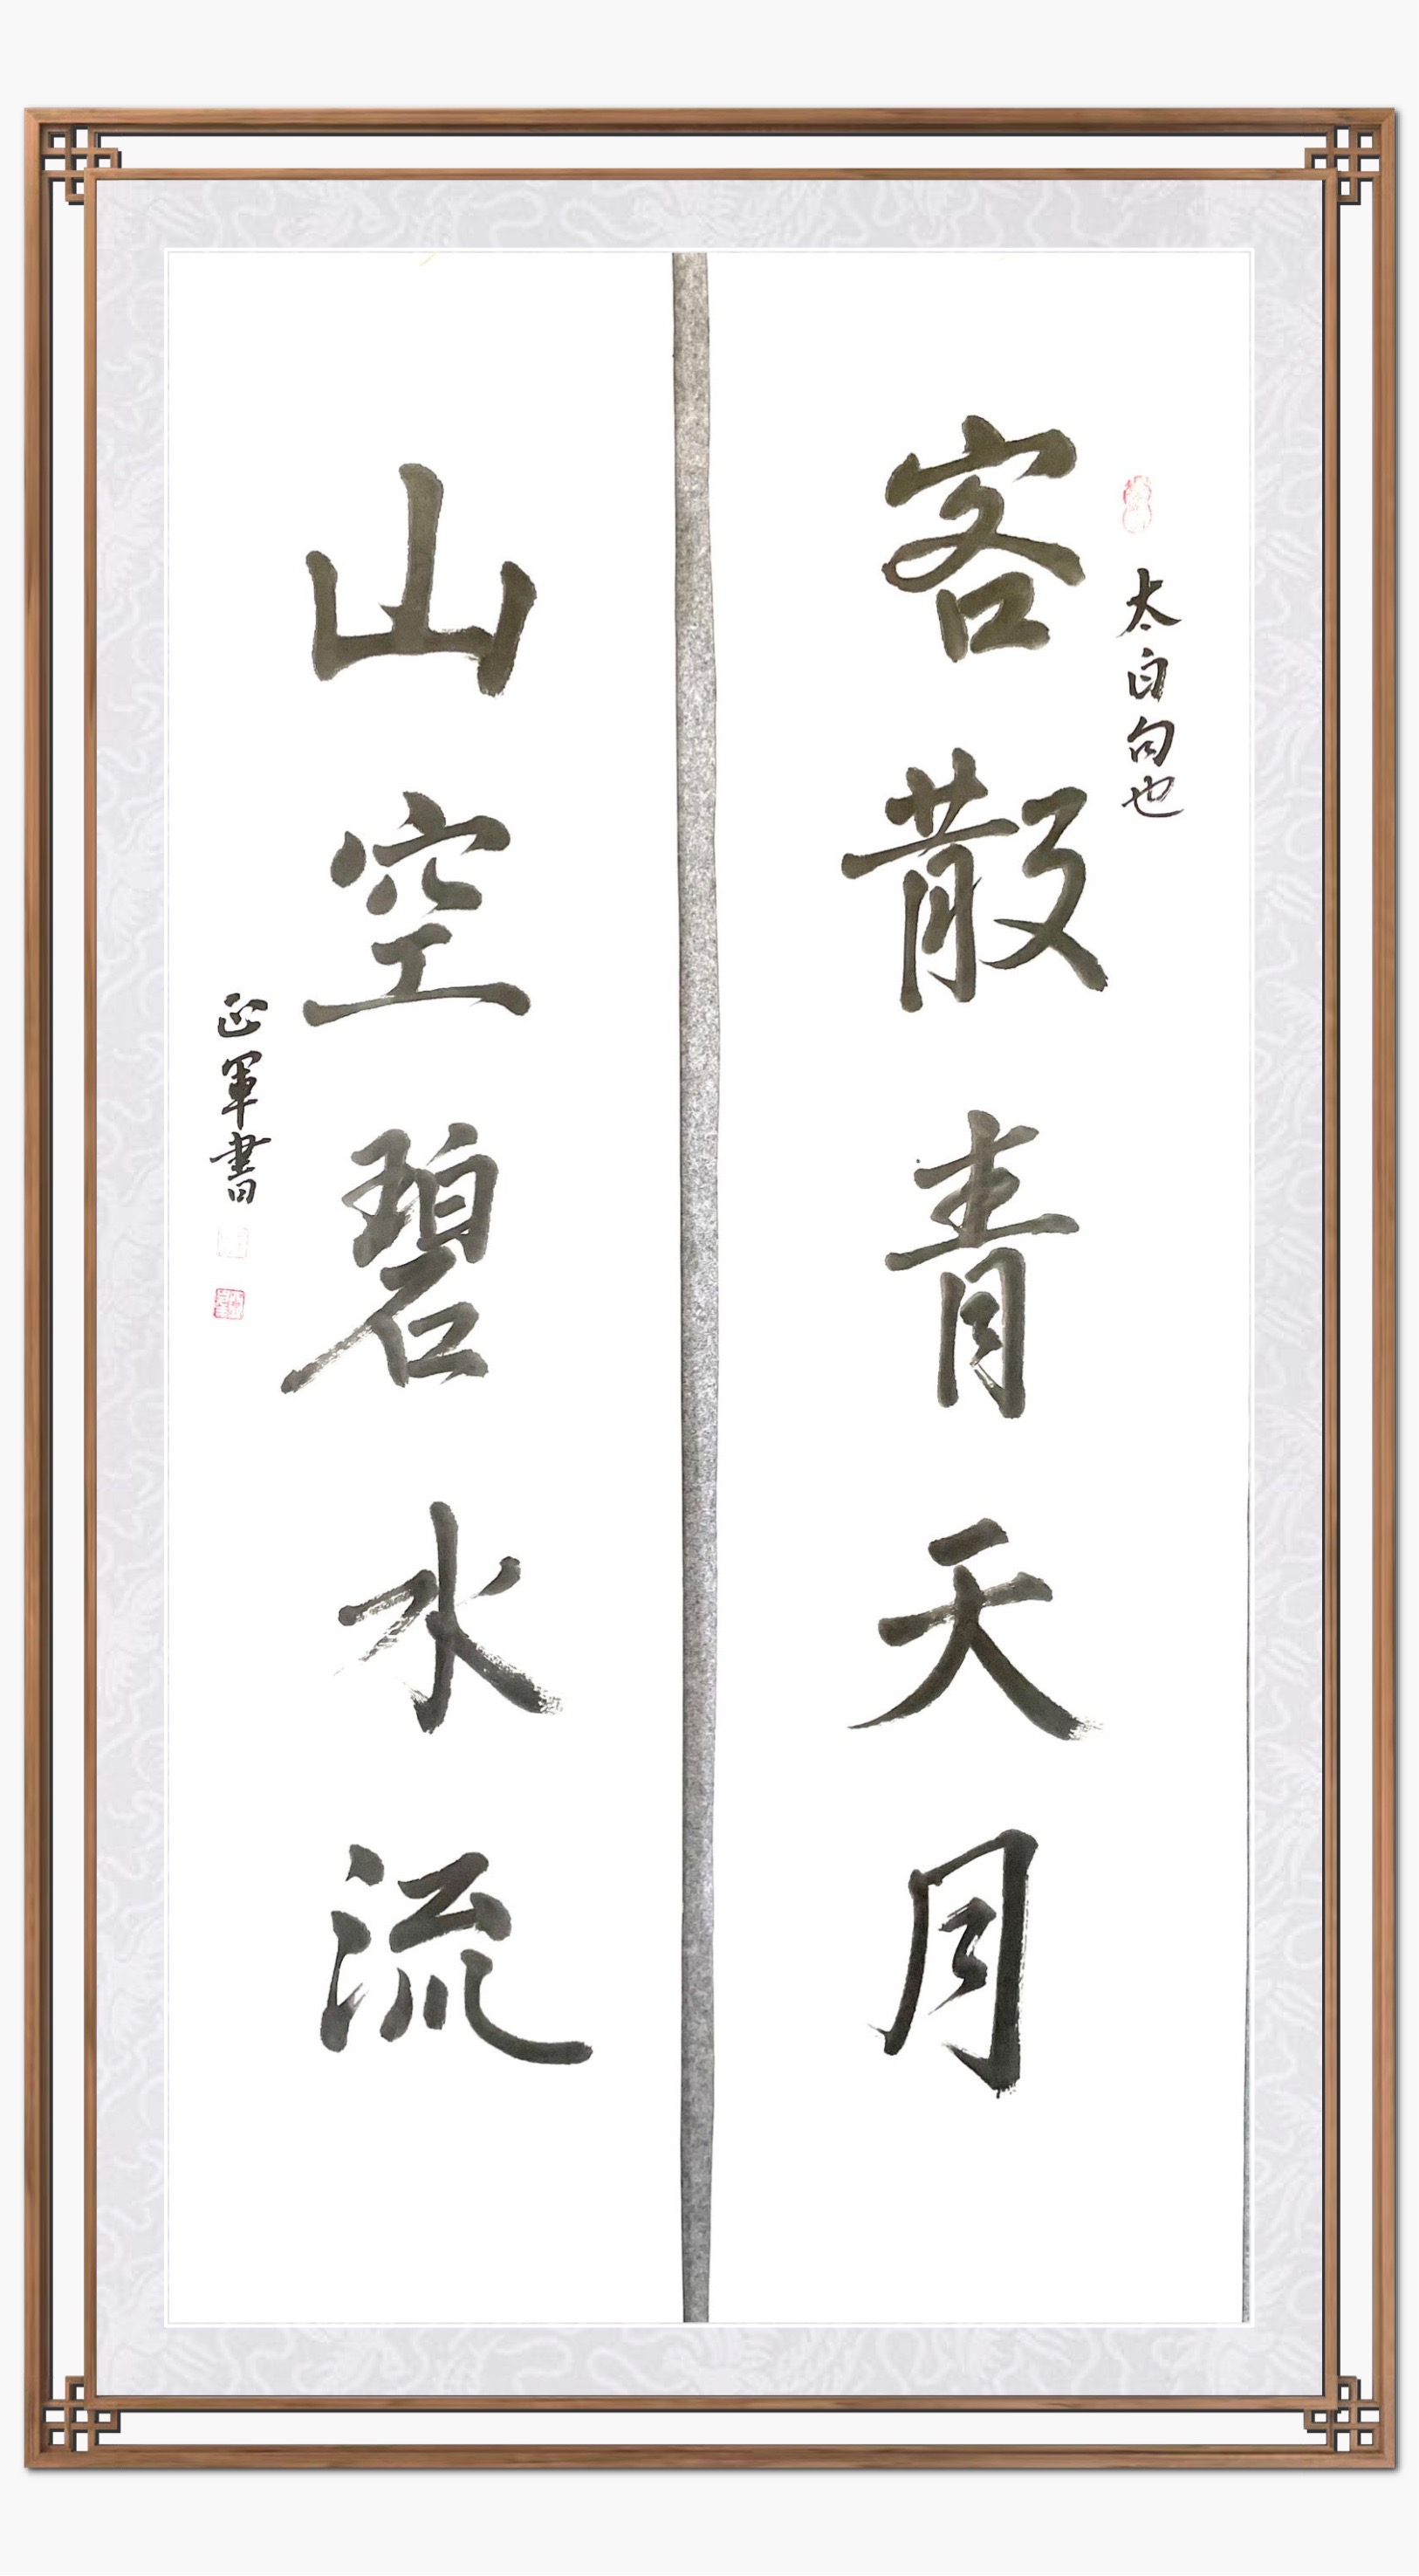 太白句也
客散青天月
山空碧水流
正軍書